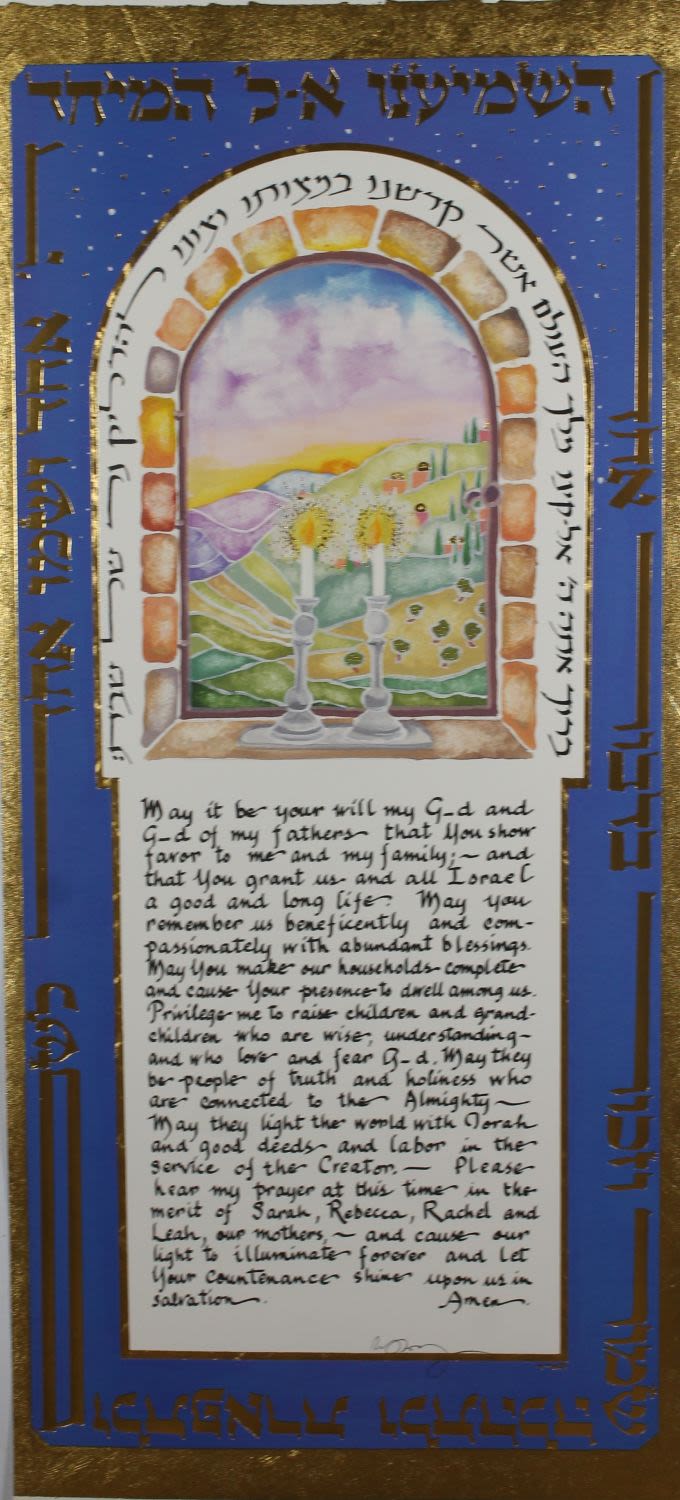 שמור וזכור בדבור אחד
השמיענו א-ל המיחד
אחד ושמו אחד לשם
ולתפארת ולתהלה
ברוך אתה ה' אלקינו מלך העולם אשר קדשנו במצותיו וצונו להדליק נר של שבת
May it be your will my G-d and
G-d of my fathers that You show
favor to me and my family; ~ and
that You grant us and all Israel
a good and long life. May you
remember us beneficently and com-
passionately with abundant blessings.
May You make our households complete
and cause Your presence to dwell among us.
Privilege me to raise children and grand-
children who are wise, understanding
and who love and fear G-d. May they
be people of truth and holiness who
are connected to the Almighty ~
May they light the world with Torah
and good deeds and labor in the
service of the Creator. — Please
hear my prayer at this time in the
merit of Sarah, Rebecca, Rachel and
Leah, our mothers, ~ and cause our
light to illuminate forever and let
Your countenance shine upon us in
salvation. Amen.